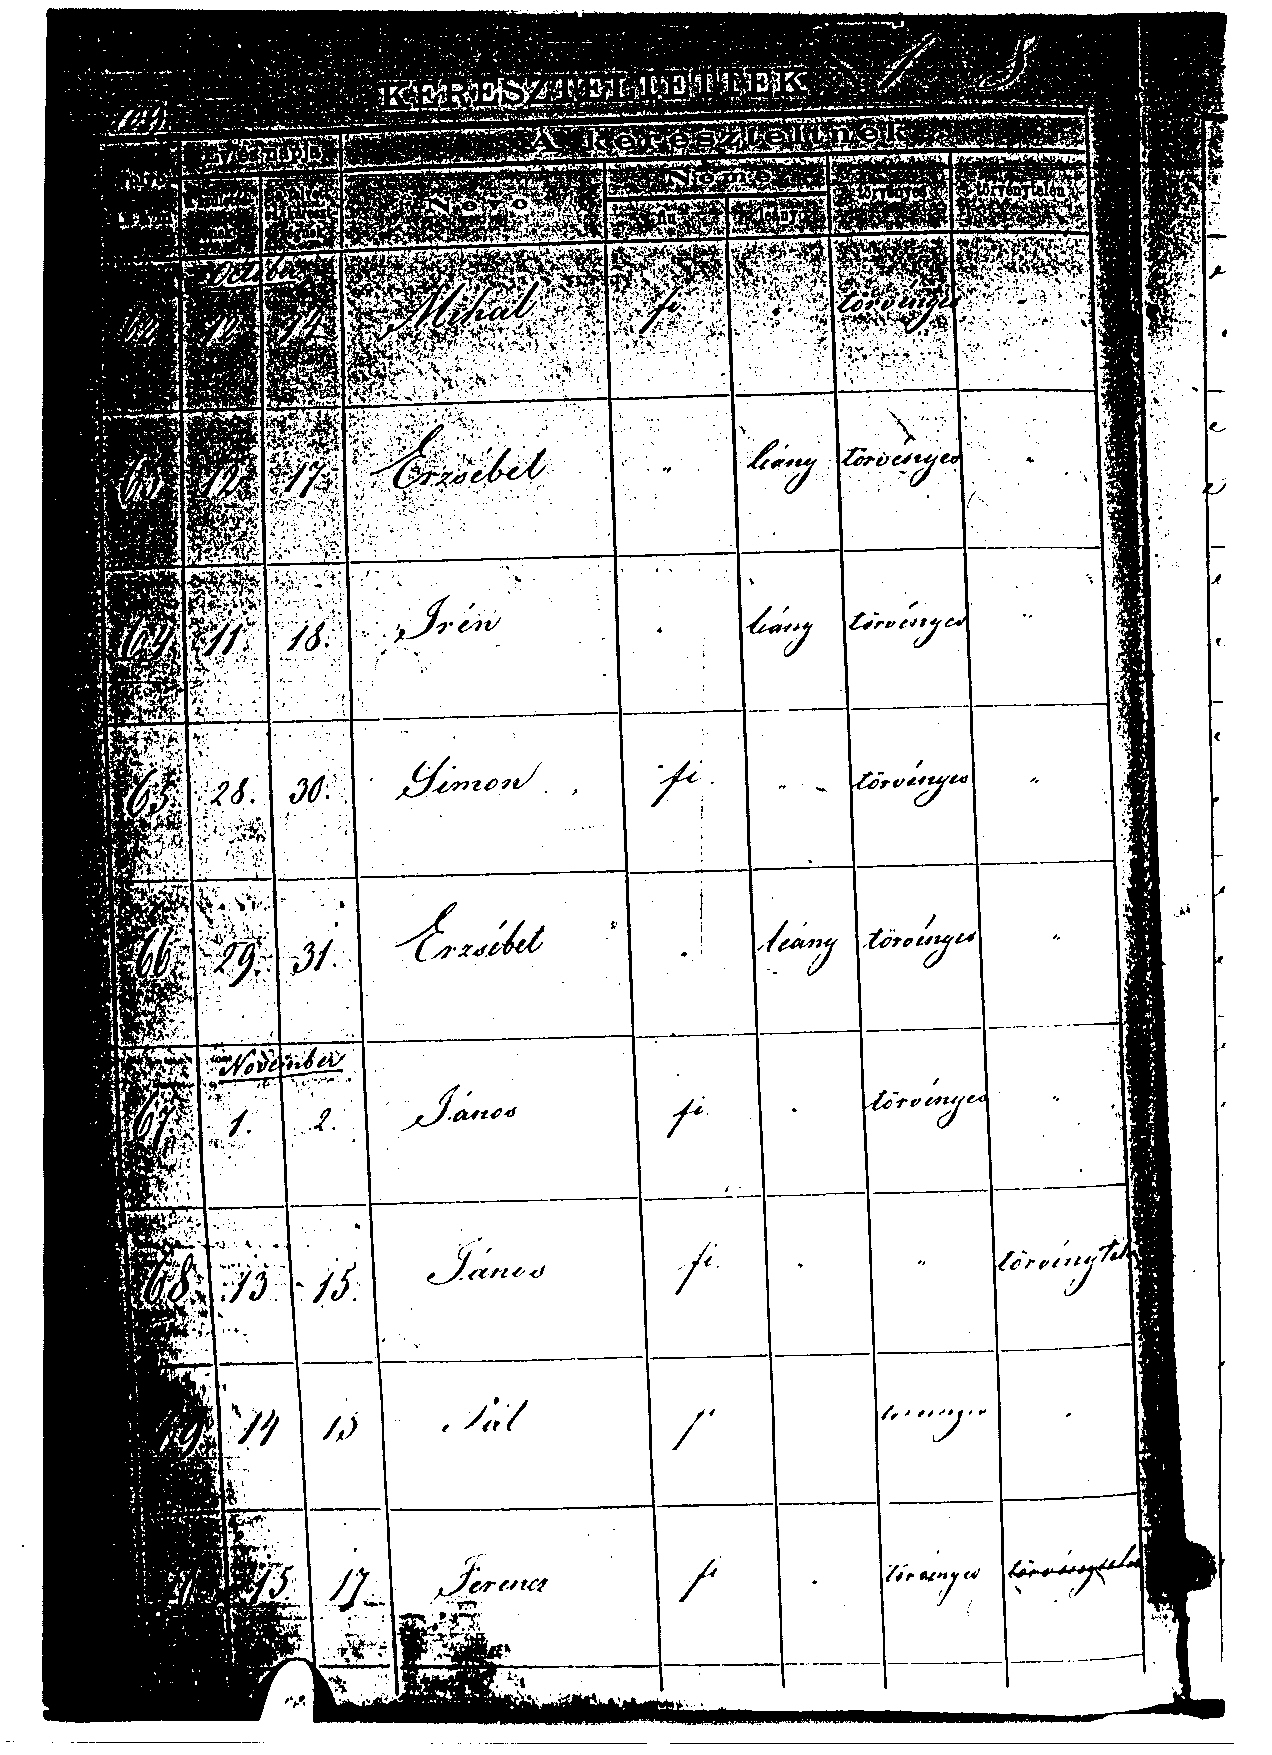 KERESZTELTETTEK
A kereszteltnek
Neve
Neme
fiu
leány
törvényes
törvénytelen
October
62 12 12 Mihál fi " törvényes "
63 12 17. Erzsébet " leány törvényes "
64 11 18. Irén " leány törvényes "
65 28. 30. Simon fi " törvényes "
66 29. 31. Erzsébet " leány törvényes "
November
67. 1. 2. János fi " törvényes "
68. 13 15. János fi " " törvénytel
14 15 Pál fi törvényes "
15. 17. Ferencz fi " törvényes